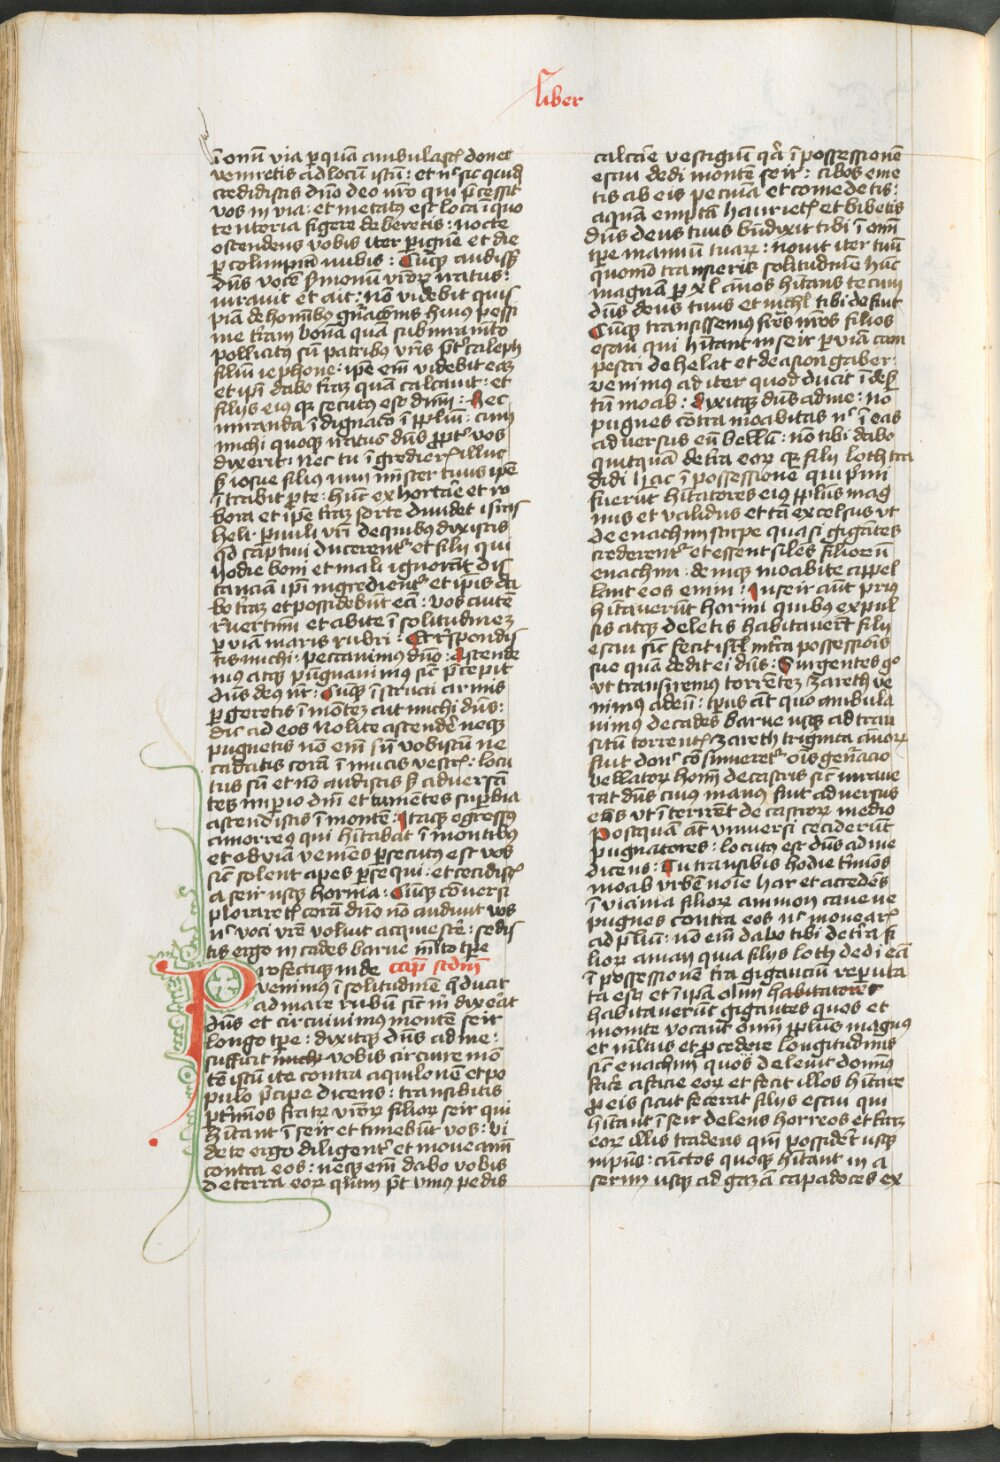 liber
ī om̄i via p quā ambulastꝭ donec
veniretis ad locū istū : et nᶜ sic quidꝫ
credidistis dn̄o deo vr̄o qui p̄cessit
vos in via · et metatꝰ est loca ī quo
tentoria figere deberetis : nocte
ostendens vobis iter p ignē et die
p colimpnā nubis : Cūqꝫ audissꝫ
dn̄s vocē s̄monum vr̄orꝝ iratus :
iuravit et ait : Nō videbit quis
piā de homībꝰ gn̄acōnis huiꝰ pessi
me tr̄am bonā quā sub iuramn̄to
pollicitꝰ sū patribus vr̄is p̄tᵉ caleph
filiū iephone : ipe em̄ videbit eaꝫ
et ip̄i dabo tr̄aꝫ quā calcavit : et
filijs eiꝰ qꝛ secutꝰ est dnm̄ : Nec
miranda ī dignacō ī pplm̄ : cum
michi quoqꝫ iratus dn̄s ppt̄ vos
dixerit · Nec tu ī gredierꝭ illuc
sꝫ iosue filius nun mīster tuus ipē
ītrabit p te : hūc exhortar̄e et ro
bora et ipē tr̄aꝫ sorte dividet isrl̄i
heli · pvuli vr̄i de quibꝰ dixistis
qd̄ captivi ducerentᵉ et filij qui
hodie boni et mali ignorāt dis
tanciam ip̄i ingredientᵉ et ip̄is da
bo tr̄aꝫ et possidebūt eā : vos autē
r̄vertimī et abite ī solitudineꝫ
p viam maris rubri : Et r̄spondis
tis michi · peccavimꝰ dn̄o : Ascende
mus atqꝫ pugnavimꝰ sic̄ p̄cepit
dn̄s deꝰ nr̄ : Cūqꝫ īstructi armis
pgeretis ī mōteꝫ ait michi dn̄s :
Dic ad eos nolite ascendē neqꝫ
pugnetis nō em̄ sū vobiscū ne
cadatis corā īimicis vestrꝭ : locu
tus sū et nō audistis sꝫ adversā
tes imꝑio dnī et tumētes supbia
ascendistis ī montē : Itaqꝫ egressꝰ
amorreꝰ qui hītabat ī montibꝰ
et obviā veniēs ꝑsecutꝰ est vos
sic̄ solent apes ꝑsequi · et cecidistꝭ
a seir usqꝫ horma : Cūqꝫ cōversi
ploraretꝭ corā dn̄o nō audivit vos
nᶜ voci vr̄e voluit acquiescē̄ : sedis
tis ergo in cades barne m̄lto tp̄e
Profectiqꝫ inde cap̄ scdm̄
venimus ī solitudinē q̄ ducit
ad mare rubū sic̄ m̄ dixerat
dn̄s et circuivimꝰ montē seir
longo tp̄e : dixitqꝫ dn̄s ad me :
sufficit michi vobis circuire mon
tē istū ite contra aquilonē et po
pulo p̄cipe dicens : transibitis
p t̄mīos fratrꝝ vr̄orꝝ filiorꝝ seir qui
hītant ī seir et timebūt vos : vi
dete ergo diligentᵉ et moveamī
contra eos : neqꝫ em̄ dabo vobis
de terra eorꝝ qn̄tm p̄t vniꝰ pedis
calcar̄e vestigiū qꝛ ī possessionē
esau dedi montē seir : cibos eme
tis ab eis pecunia et comedetis :
aquā emptā haurietꝭ et bibetis
dn̄s deus tuus bn̄dixit tibi ī om̄i
ope manuū tuarꝝ : novit iter tuū
quomō transieris solitudinē hāc
magnā p xl ānos hītans tecum
dn̄s deus tuus et nichl̄ tibi defuit
Cūqꝫ transissemus fr̄es nr̄os filios
esau qui hītant in seir p viā cam
pestrē de helat et de asiongaber :
venimus ad iter quod ducit ī deser
tū moab : dixitqꝫ dn̄s ad me : nō
pugnes cōtra moabitas nᶜ ī eas
adversus eū bella : nō tibi dabo
quitquā de tr̄a eorꝝ qꝛ filij loth tra
didi hac ī possessione qui p̄mi
fuerūt hītatores eiꝰ pplūs mag
nus et validus et tā excelsus vt
de enachim stirpe quasi gigātes
crederentᵉ et essent siles filiorū
enachim · deniqꝫ moabite appel
lant eos emim : In seir aūt prius
hītaverūt horini quibꝰ expul
sis atqꝫ deletis habitaverūt filij
esau sic̄ fecit isrl̄ in tr̄a possessionis
sue quā dedit ei dn̄s : Surgentes gͦ
vt transiremus torrenteꝫ zareth ve
nimus ad eū : tp̄us aūt quo ambula
vimus de cades barne usqꝫ ad tran
situ torrentꝭ zareth triginta ānorꝝ
fuit donᶜ cōsumeretᵉ oīs gen̄acio
bellatorꝝ homī de castris sic̄ iurave
rat dn̄s cuius manus fuit adversus
eos vt īterirēt de castrorꝝ medio
Postquā aūt vniversi ceciderūt
pugnatores : locutꝰ est dn̄s ad me
dicens : Tu transibis hodie t̄mīos
moab vrbē noīe har et accedēs
ī vicinia filiorꝝ ammon cave ne
pugnes contra eos nᶜ movearꝭ
ad p̄liū · nō em̄ dabo tibi de tr̄a fi
liorꝝ aman quia filijs loth dedi eā
ī possessionē tr̄a gigantiū reputa
ta est · et ī ip̄a olim habitatores
habitaverūt gigantes quos et
monite vocant dnm̄ pplūs magnꝰ
et m̄ltus et p̄cedere longitudinis
sic̄ enachim quos delevit domīus
fac̄e a facie eorꝝ et fecit illos hītare
p eis sicut fecerat filijs esau qui
hītant ī seir delens horreos et tr̄aꝫ
eorꝝ illis tradens qm̄ possidēt usqꝫ
in p̄ns : cūctos quoqꝫ hītant in a
serim usqꝫ ad gazā capadoces ex